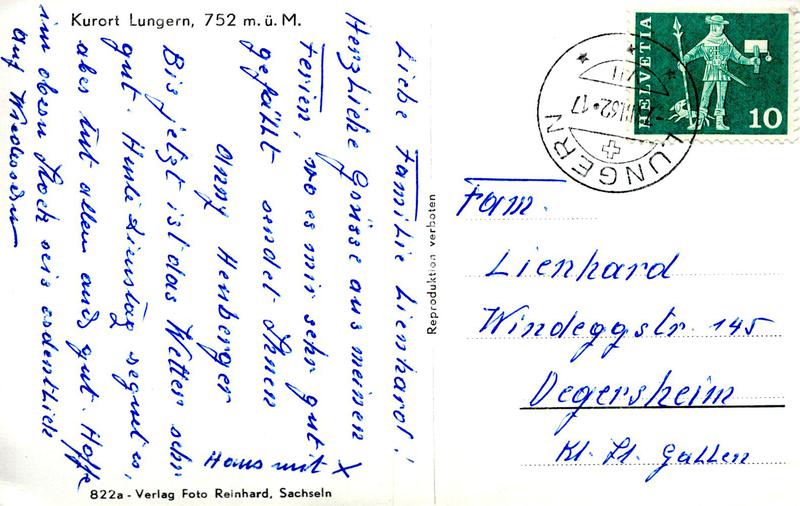 Kurort Lungern, 752 m. ü. M.
Liebe Familie Lienhard!
Herzliche Grüsse aus meinen
Ferien, wo es mir sehr gut
gefällt sendet Ihnen
Anny Henberger
Haus mit X
Bis jetzt ist das Wetter sehr
gut. Heute Dienstag regnet es,
aber tut allem auch gut. Hoffe
im obern Stock seis ordentlich
auf Wiedersehn
822a - Verlag Foto Reinhard, Sachseln
Reproduktion verboten
HELVETIA
10
LUNGERN
62-17
Fam.
Lienhard
Windeggstr. 145
Degersheim
Kt. St. Gallen